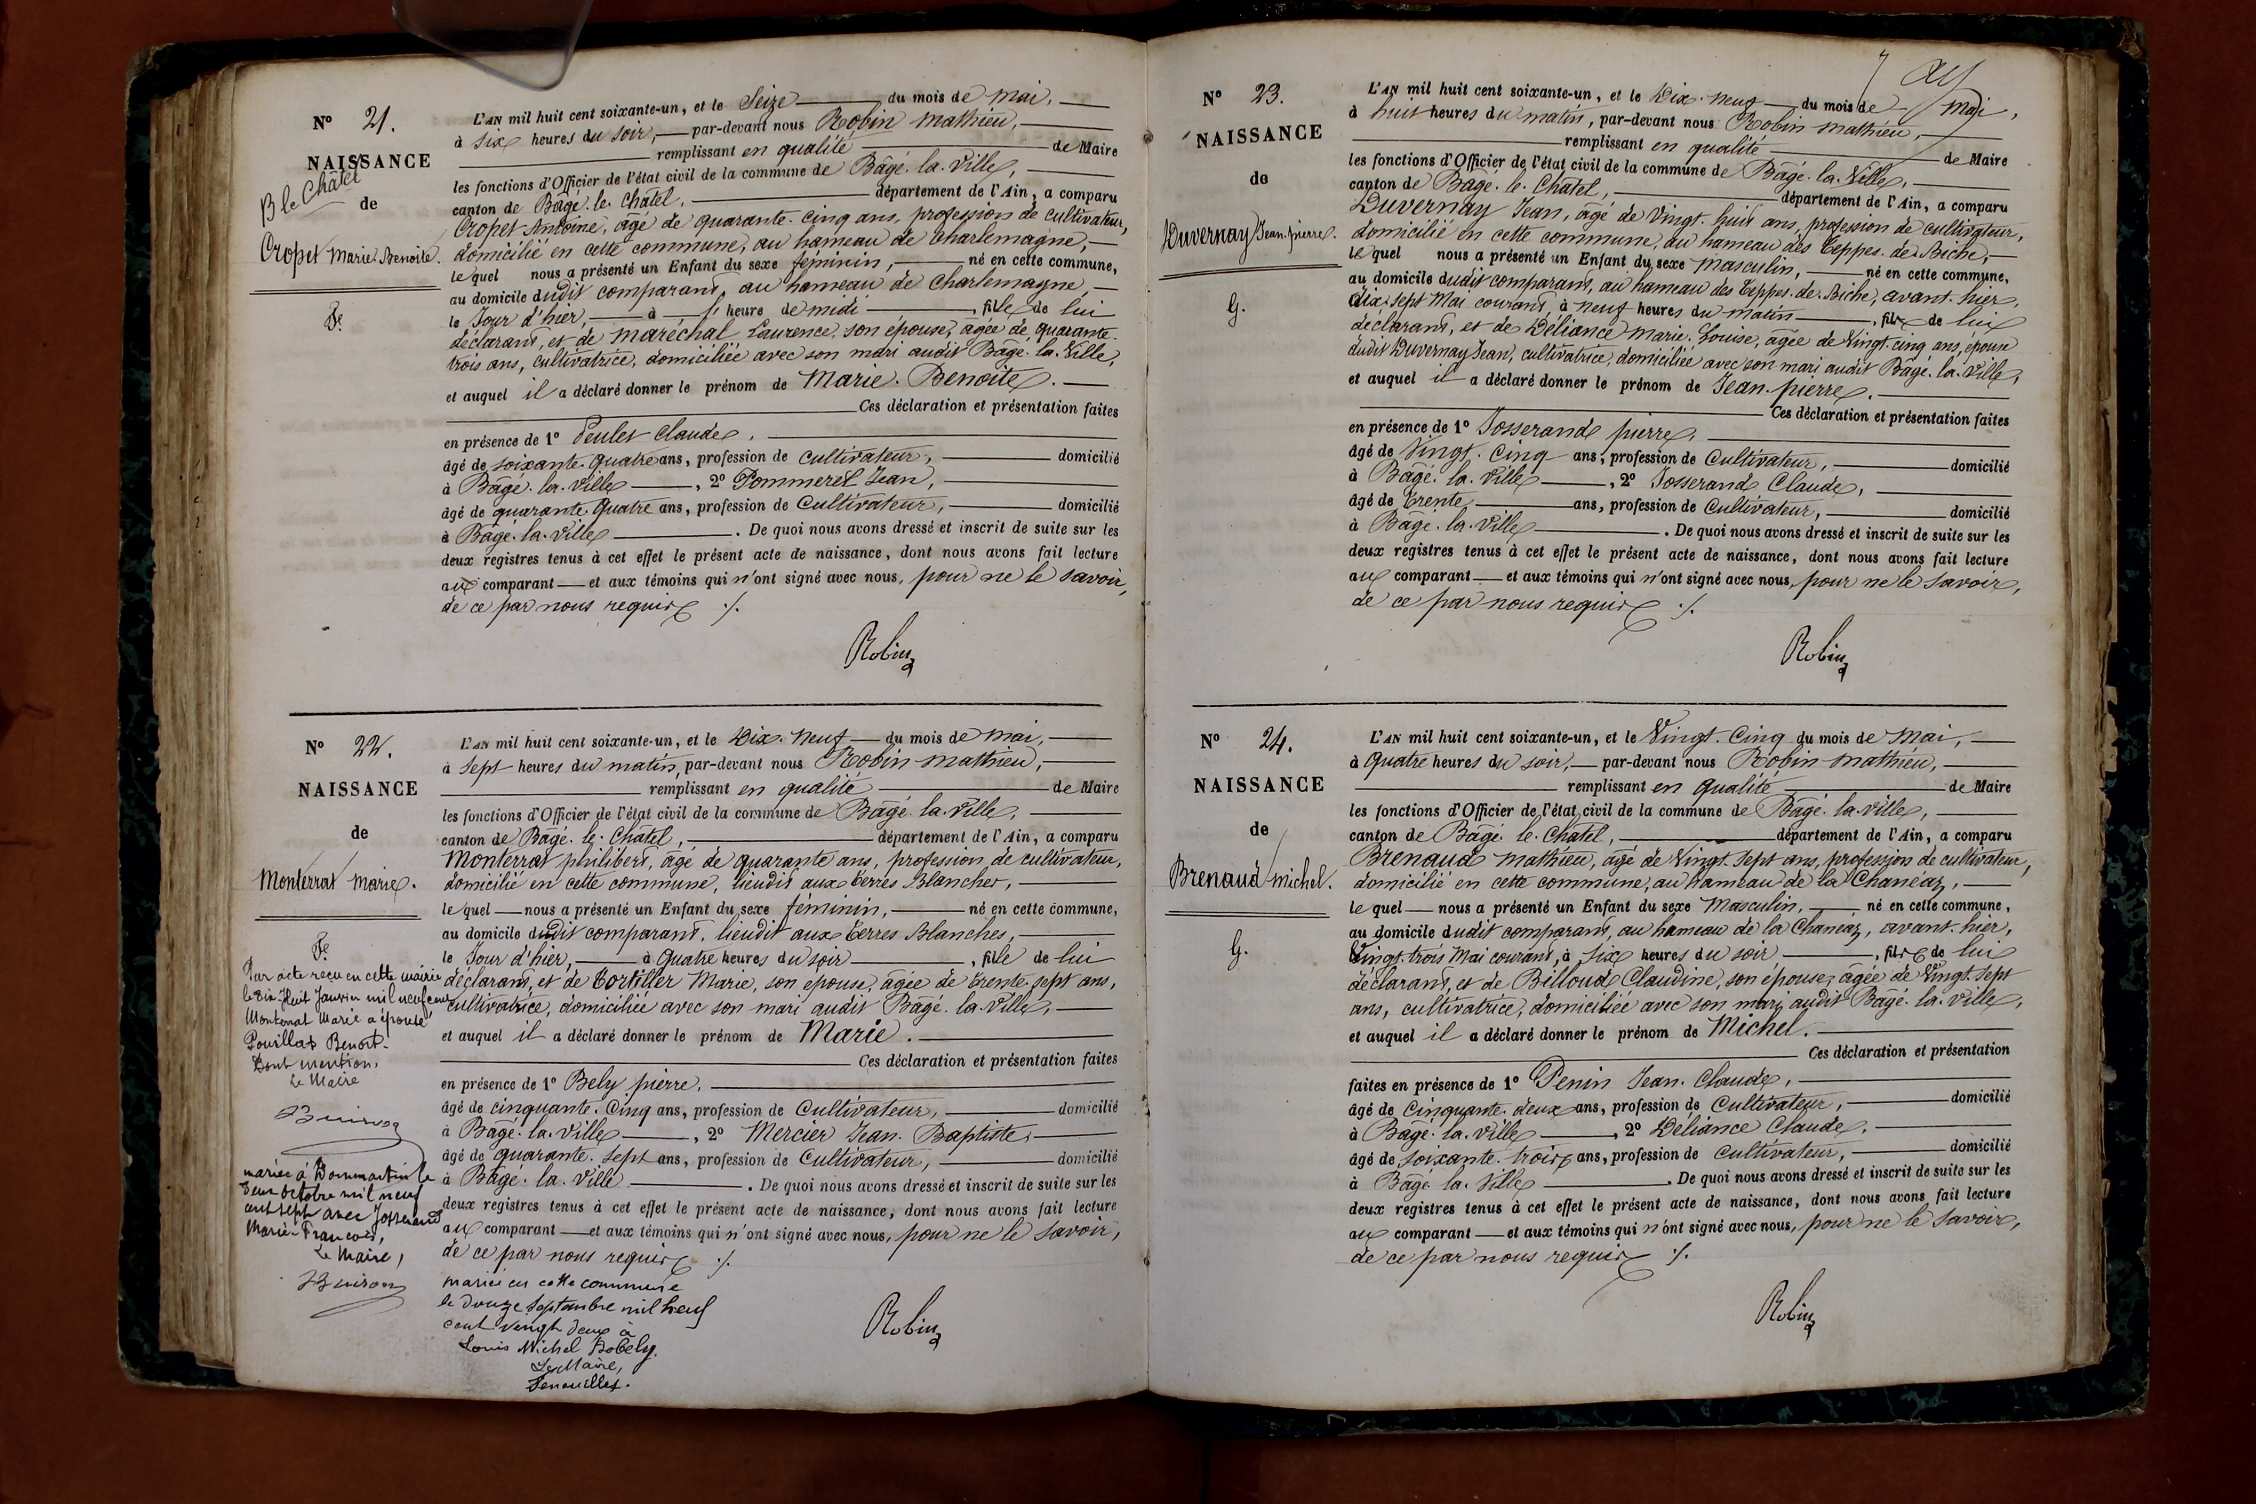 N° 21.
NAISSANCE
B le Châtel
de
Cropet Marie Benoite.
Fe
L'AN mil huit cent soixante-un, et le Seize du mois de mai,
à six heures du soir, par-devant nous Robin mathieu,
remplissant en qualité de Maire
les fonctions d'Officier de l'état civil de la commune de Bâgé-la-ville,
canton de Bâgé-le-Châtel, département de l'Ain, a comparu
Cropet Antoine, âgé de quarante-cinq ans, profession de cultivateur,
domicilié en cette commune, au hameau de Charlemagne,
lequel nous a présenté un Enfant du sexe féminin, né en cette commune,
au domicile dudit comparant, au hameau de Charlemagne,
le Jour d'hier, à l' heure de midi, file de lui
déclarant, et de maréchal Laurence, son épouse, âgée de quarante-
trois ans, cultivatrice, domiciliée avec son mari audit Bâgé-la-Ville,
et auquel il a déclaré donner le prénom de Marie-Benoite.
Ces déclaration et présentation faites
en présence de 1° Peulet Claude,
âgé de soixante-quatre ans, profession de Cultivateur, domicilié
à Bâgé-la-ville, 2° Pommerel Jean,
âgé de quarante-quatre ans, profession de Cultivateur, domicilié
à Bâgé-la-ville. De quoi nous avons dressé et inscrit de suite sur les
deux registres tenus à cet effet le présent acte de naissance, dont nous avons fait lecture
au comparant et aux témoins qui n'ont signé avec nous, pour ne le savoir,
de ce par nous requis ./.
Robin
N° 22.
NAISSANCE
de
Monterrat Marie.
Fe
Par acte reçu en cette mairie
le dix Huit Janvier mil neuf cent
Monterrat Marie a épousé
Pouillat Benoit.
Dont mention.
Le Maire
Buiron
mariée à Dommartin le
deux octobre mil neuf
cent sept avec Josserand
Marie-François,
Le Maire,
Buiron
L'AN mil huit cent soixante-un, et le Dix-neuf du mois de mai,
à sept heures du matin, par-devant nous Robin mathieu,
remplissant en qualité de Maire
les fonctions d'Officier de l'état civil de la commune de Bâgé-la-ville,
canton de Bâgé-le-Châtel, département de l'Ain, a comparu
Monterrat philibert, âgé de quarante ans, profession de cultivateur,
domicilié en cette commune, lieudit aux Terres Blanches,
lequel nous a présenté un Enfant du sexe féminin, né en cette commune,
au domicile dudit comparant, lieudit aux Terres Blanches,
le Jour d'hier, à quatre heures du soir, file de lui
déclarant, et de Tortiller Marie, son epouse, âgée de trente-sept ans,
cultivatrice, domiciliée avec son mari audit Bâgé-la-Ville,
et auquel il a déclaré donner le prénom de Marie.
Ces déclaration et présentation faites
en présence de 1° Bely pierre,
âgé de cinquante-cinq ans, profession de Cultivateur, domicilié
à Bâgé-la-ville, 2° Mercier Jean-Baptiste,
âgé de quarante-sept ans, profession de Cultivateur, domicilié
à Bâgé-la-ville. De quoi nous avons dressé et inscrit de suite sur les
deux registres tenus à cet effet le présent acte de naissance, dont nous avons fait lecture
au comparant et aux témoins qui n'ont signé avec nous, pour ne le savoir,
de ce par nous requis ./.
mariée en cette commune
le douze Septembre mil neuf
cent vingt deux à
Louis Michel Bobély.
Le Maire,
Robin
7
N° 23.
NAISSANCE
de
Duvernay Jean-pierre.
G.
L'AN mil huit cent soixante-un, et le Dix-neuf du mois de mai,
à huit heures du matin, par-devant nous Robin mathieu,
remplissant en qualité de Maire
les fonctions d'Officier de l'état civil de la commune de Bâgé-la-Ville,
canton de Bâgé-le-Châtel, département de l'Ain, a comparu
Duvernay Jean, âgé de Vingt-huit ans, profession de cultivateur,
domicilié en cette commune, au hameau des Teppes-de-Biche,
lequel nous a présenté un Enfant du sexe masculin, né en cette commune,
au domicile dudit comparant, au hameau des Teppes-de-Biche, avant-hier,
dix-sept Mai courant à neuf heures du matin, fils de lui
déclarant, et de Déliance Marie-Louise, âgée de Vingt-cinq ans, épouse
dudit Duvernay Jean, cultivatrice, domiciliée avec son mari audit Bâgé-la-ville,
et auquel il a déclaré donner le prénom de Jean-pierre.
Ces déclaration et présentation faites
en présence de 1° Josserand pierre,
âgé de Vingt-Cinq ans, profession de Cultivateur, domicilié
à Bâgé-la-ville, 2° Josserand Claude,
âgé de Trente ans, profession de Cultivateur, domicilié
à Bâgé-la-ville. De quoi nous avons dressé et inscrit de suite sur les
deux registres tenus à cet effet le présent acte de naissance, dont nous avons fait lecture
au comparant et aux témoins qui n'ont signé avec nous, pour ne le savoir,
de ce par nous requis ./.
Robin
N° 24.
NAISSANCE
de
Brenaud michel.
G.
L'AN mil huit cent soixante-un, et le Vingt-Cinq du mois de Mai,
à quatre heures du soir, par-devant nous Robin mathieu,
remplissant en qualité de Maire
les fonctions d'Officier de l'état civil de la commune de Bâgé-la-ville,
canton de Bâgé-le-Châtel, département de l'Ain, a comparu
Brenaud mathieu, âgé de Vingt-sept ans, profession de cultivateur,
domicilié en cette commune, au hameau de la Chanéaz,
lequel nous a présenté un Enfant du sexe Masculin, né en cette commune,
au domicile dudit comparant, au hameau de la Chanéaz, avant-hier,
Vingt-trois Mai courant, à six heures du soir, fils de lui
déclarant, et de Billoud Claudine, son épouse, âgée de Vingt-sept
ans, cultivatrice, domiciliée avec son mari audit Bâgé-la-ville,
et auquel il a déclaré donner le prénom de Michel.
Ces déclaration et présentation
faites en présence de 1° Penin Jean-Claude,
âgé de Cinquante-deux ans, profession de Cultivateur, domicilié
à Bâgé-la-ville, 2° Déliance Claude,
âgé de soixante-trois ans, profession de Cultivateur, domicilié
à Bâgé-la-Ville. De quoi nous avons dressé et inscrit de suite sur les
deux registres tenus à cet effet le présent acte de naissance, dont nous avons fait lecture
au comparant et aux témoins qui n'ont signé avec nous, pour ne le savoir,
de ce par nous requis ./.
Robin